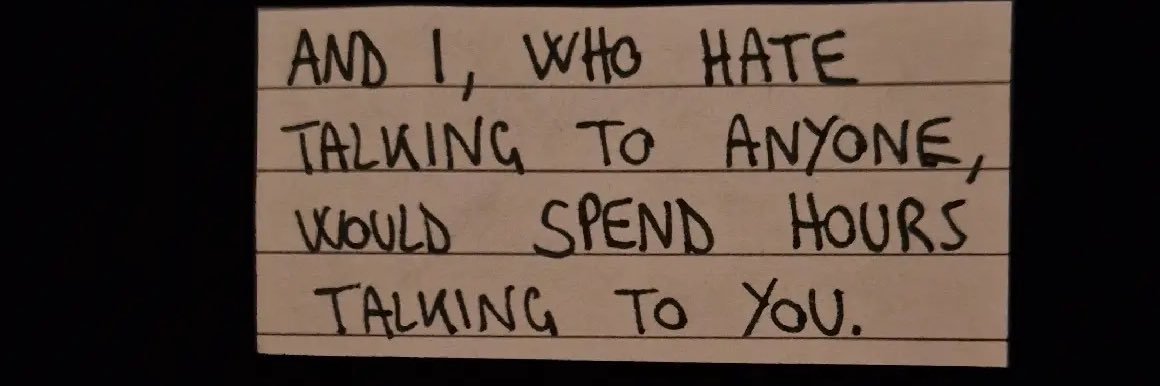 AND I, WHO HATE
TALKING TO ANYONE,
WOULD SPEND HOURS
TALKING TO YOU.